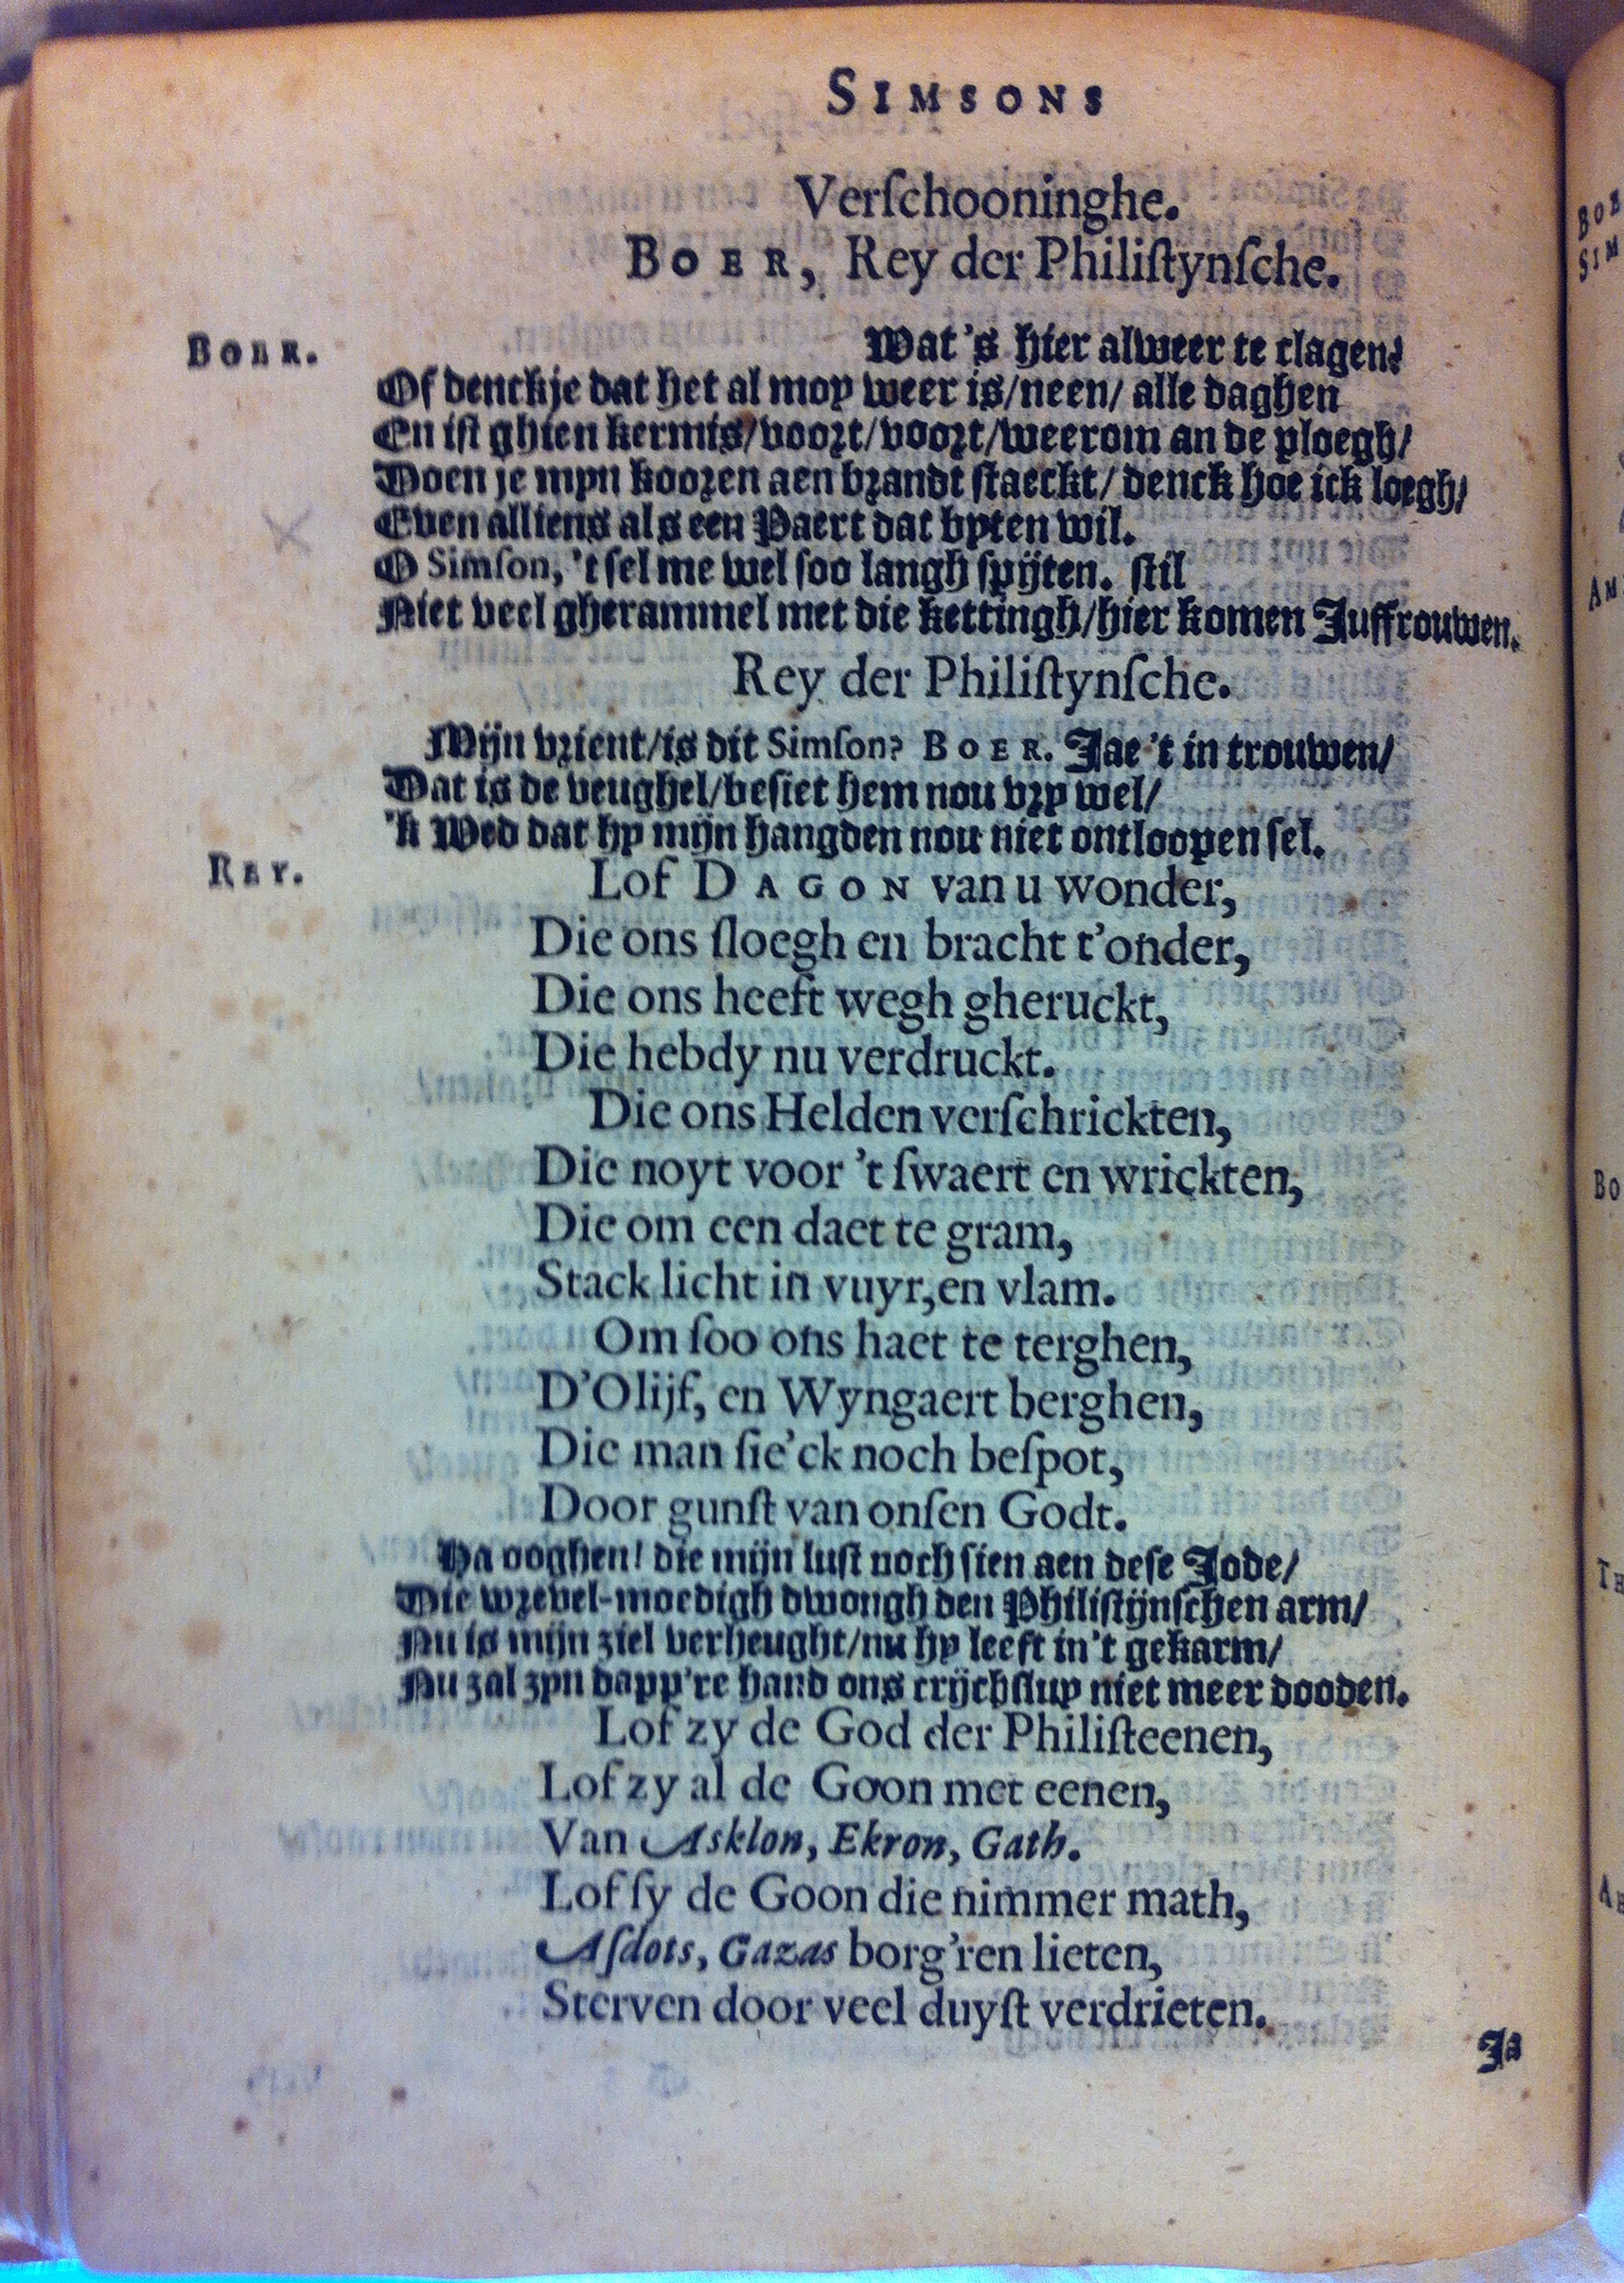 SIMSONS
Verſchooninghe.
BOER, Rey der Philiſtynſche.
BOER. Wat 's hier alweer te clagen?
Of denckje dat het al moy weer is/neen/ alle daghen
En iſt ghien kermis/voort/voort/weerom an de ploegh/
Doen je myn kooren aen brandt ſtaeckt/ denck hoe ick loegh/
Even alliens als een Paert dat byten wil.
O Simſon, 't ſel me wel ſoo langh ſpijten. ſtil
Niet veel gherammel met die kettingh/hier komen Juffrouwen.
Rey der Philiſtynſche.
Mijn vrient/is dit Simſon? BOER. Jae 't in trouwen/
Dat is de veughel/beſiet hem nou vry wel/
'k Wed dat hy mijn hangden nou niet ontloopen ſel.
REY. Lof DAGON van u wonder,
Die ons ſloegh en bracht t'onder,
Die ons heeft wegh gheruckt,
Die hebdy nu verdruckt.
Die ons Helden verſchrickten,
Die noyt voor 't ſwaert en wrickten,
Die om een daet te gram,
Stack licht in vuyr,en vlam.
Om ſoo ons haet te terghen,
D'Olijf, en Wyngaert berghen,
Die man ſie'ck noch beſpot,
Door gunſt van onſen Godt.
Ha ooghen! die mijn luſt noch ſien aen deſe Jode/
Die wrevel-moedigh dwongh den Philiſtijnſchen arm/
Nu is mijn ziel verheught/nu hy leeft in't gekarm/
Nu zal zyn dapp're hand ons crijchſluy niet meer dooden.
Lof zy de God der Philiſteenen,
Lof zy al de Goon met eenen,
Van Asklon, Ekron, Gath.
Lof ſy de Goon die nimmer math,
Aſdots, Gazas borg'ren lieten,
Sterven door veel duyſt verdrieten.
Ja